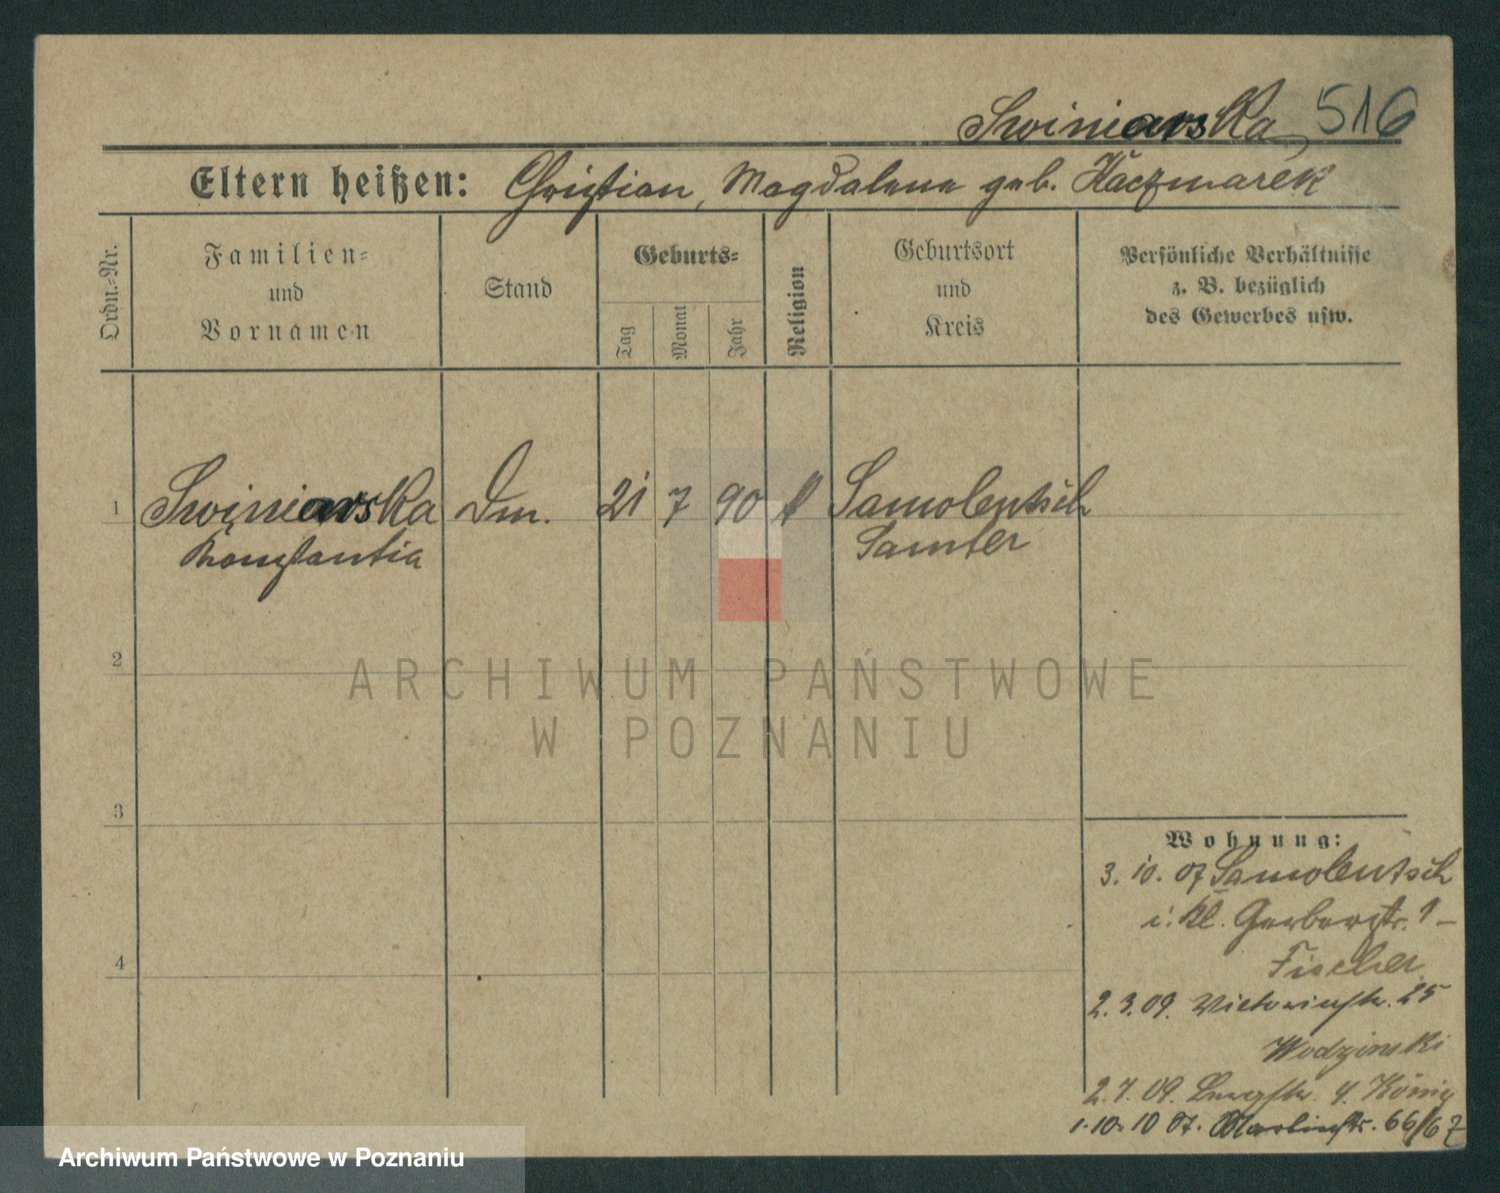 Swiniarska 516
Eltern heißen: Christian, Magdalena geb. Kaczmarek
Ordn.-Nr.
Familien- und Vornamen
Stand
Geburts-
Tag
Monat
Jahr
Religion
Geburtsort und Kreis
Persönliche Verhältnisse
z. B. bezüglich
des Gewerbes usw.
1 Swiniarska Dm. 21 7 90 k Samolentsch
Konstantia Samter
2
ARCHIWUM PAŃSTWOWE
W POZNANIU
3
Wohnung:
3. 10. 07 Samolentsch
i. Kl. Gerberstr. 1-
Fischer
4
2. 3. 09. Victoriastr. 25
Wodzinski
2. 7. 09. König
1. 10. 10 St. Martinstr. 66/67
Archiwum Państwowe w Poznaniu